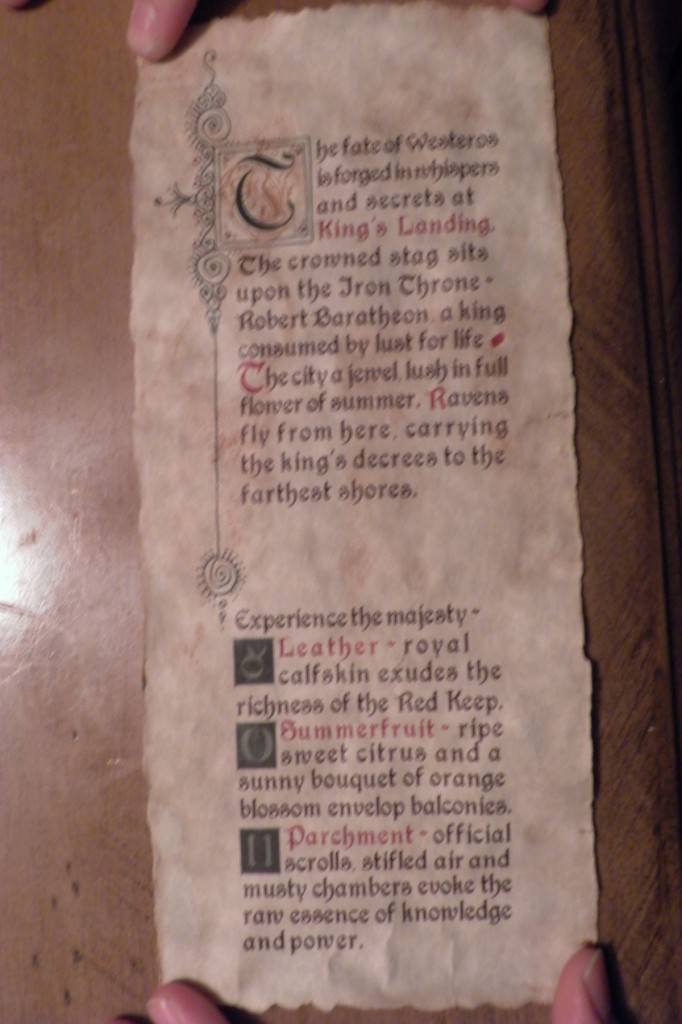 The fate of Westeros
is forged in whispers
and secrets at
King's Landing.
The crowned stag sits
upon the Iron Throne -
Robert Baratheon, a king
consumed by lust for life
The city a jewel, lush in full
flower of summer. Ravens
fly from here, carrying
the king's decrees to the
farthest shores.
Experience the majesty -
Leather - royal
calfskin exudes the
richness of the Red Keep.
Summerfruit - ripe
sweet citrus and a
sunny bouquet of orange
blossom envelop balconies.
Parchment - official
scrolls, stifled air and
musty chambers evoke the
raw essence of knowledge
and power.